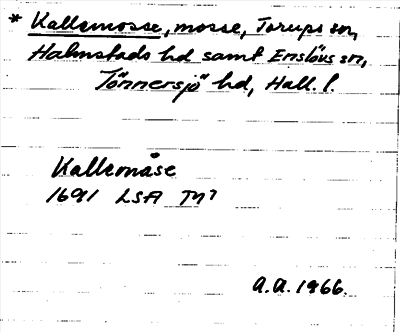 * Kallemosse, mosse, Torups sn,
Halmstads hd samt Enslövs sn,
Tönnersjö hd, Hall. l.
Kallemåse
1691 LSA
A.A. 1966.